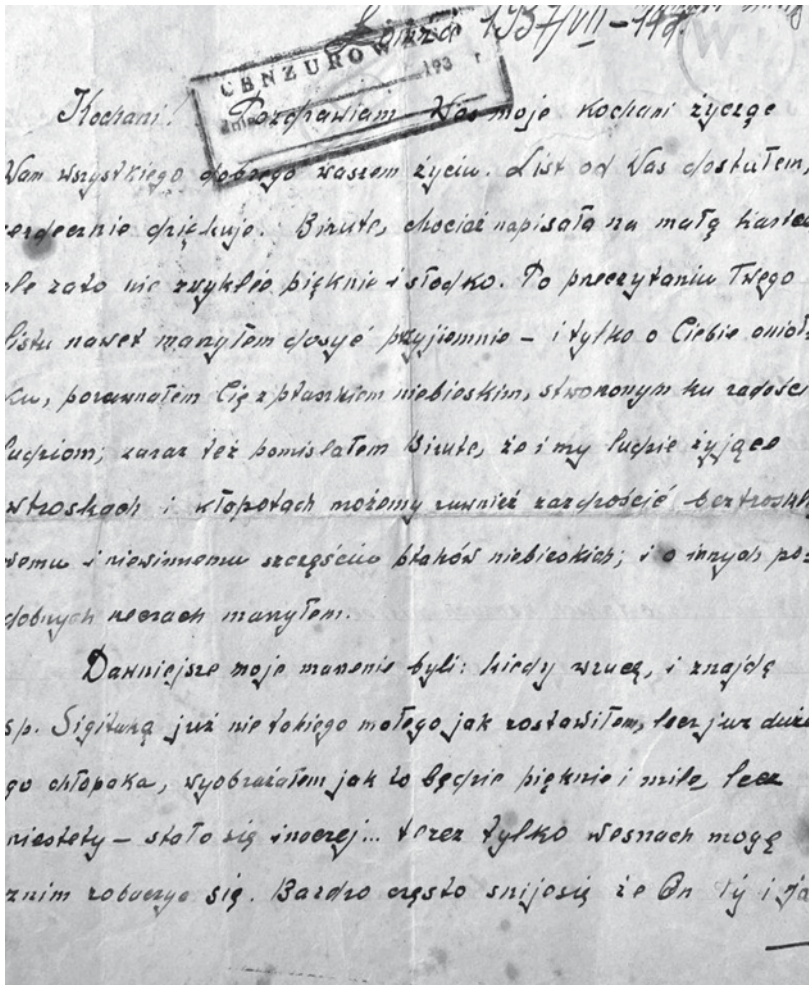 Łomża 1937/VII – 14 r.
CENZUROWANO
dnia 193 r
Kochani! Pozdrawiam Was moje kochani życzęc
Wam wszystkiego dobrego waszem życiu. List od Was dostułem,
erdecznie dziękuje. Birute, chociaż napisała na małą kartec
ale zato nie zwykłéo pięknie i słodko. Po preczytaniu Twego
listu nawet manyłem dosyć przyjiemnie – i tylko o Ciebie anioł-
ku, porawnałem Cię z ptaszkiem niebieskim, stwononym ku radości
ludziom; zaraz też pomislałem Birute, że i my ludzie żyjące
wtroskach i kłopotach możemy ruwnież zazdrościć beztrosk
wemu i niewinnemu szczęściu ptaków niebieskich; i o innych po-
dobnych reczach manyłem.
Dawniejsze moje manenie byli: kiedy wrucę, i znajdę
sp. Sigituką już nie takiego małego jak zostawiłem, lecz juz duże
go chłopaka, wyobrażałem jak to będzie pięknie i mile, lecz
niestety – stało się inaczej... teraz tylko wesnach mogę
znim zobaczyc się. Bardzo często snijesię że On Ty i Ja